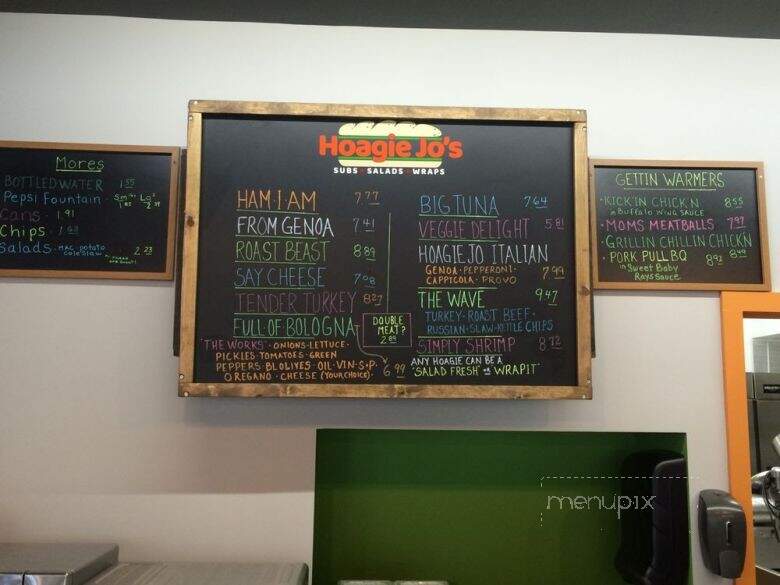 Mores
BOTTLED WATER 1.55
Pepsi Fountain Sm Lg
Cans 1.91
Chips
Salads mac, potato 2.23
coleslaw
Hoagie Jo's
SUBS SALADS WRAPS
HAM·I·AM 7.77
FROM GENOA 7.41
ROAST BEAST 8.89
SAY CHEESE 7.08
TENDER TURKEY 8.27
FULL OF BOLOGNA
DOUBLE
MEAT?
"THE WORKS" - ONIONS - LETTUCE -
PICKLES - TOMATOES - GREEN
PEPPERS - BL OLIVES - OIL - VIN - S+P -
OREGANO - CHEESE (YOUR CHOICE) - 6.99
BIG TUNA 7.64
VEGGIE DELIGHT 5.81
HOAGIE JO ITALIAN
GENOA - PEPPERONI - 7.99
CAPPICOLA - PROVO
THE WAVE 9.47
TURKEY - ROAST BEEF -
RUSSIAN - SLAW - KETTLE CHIPS
SIMPLY SHRIMP 8.72
ANY HOAGIE CAN BE A
"SALAD FRESH" or WRAP IT
GETTIN WARMERS
· KICK'IN CHICK'N 8.55
in BUFFALO WING SAUCE
· MOMS MEATBALLS 7.97
· GRILLIN CHILLIN CHICK'N
· PORK PULL BQ 8.92
in Sweet Baby
Rays Sauce
menupix